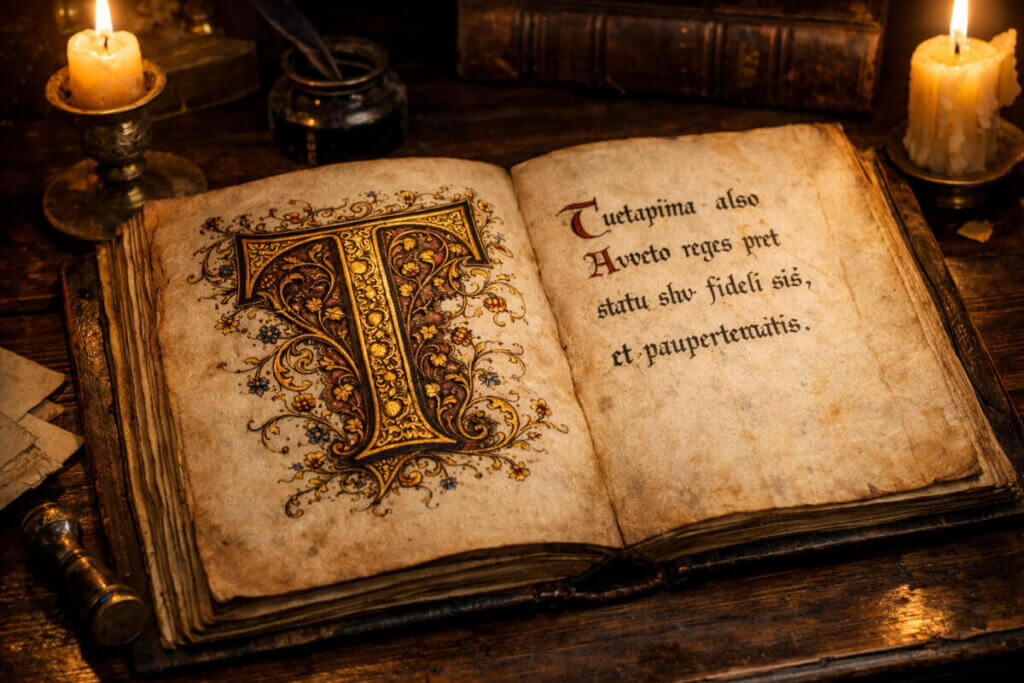 T
Tuetapima also
Avveto reges pret
statu shv fideli sis,
et pauperternatis.